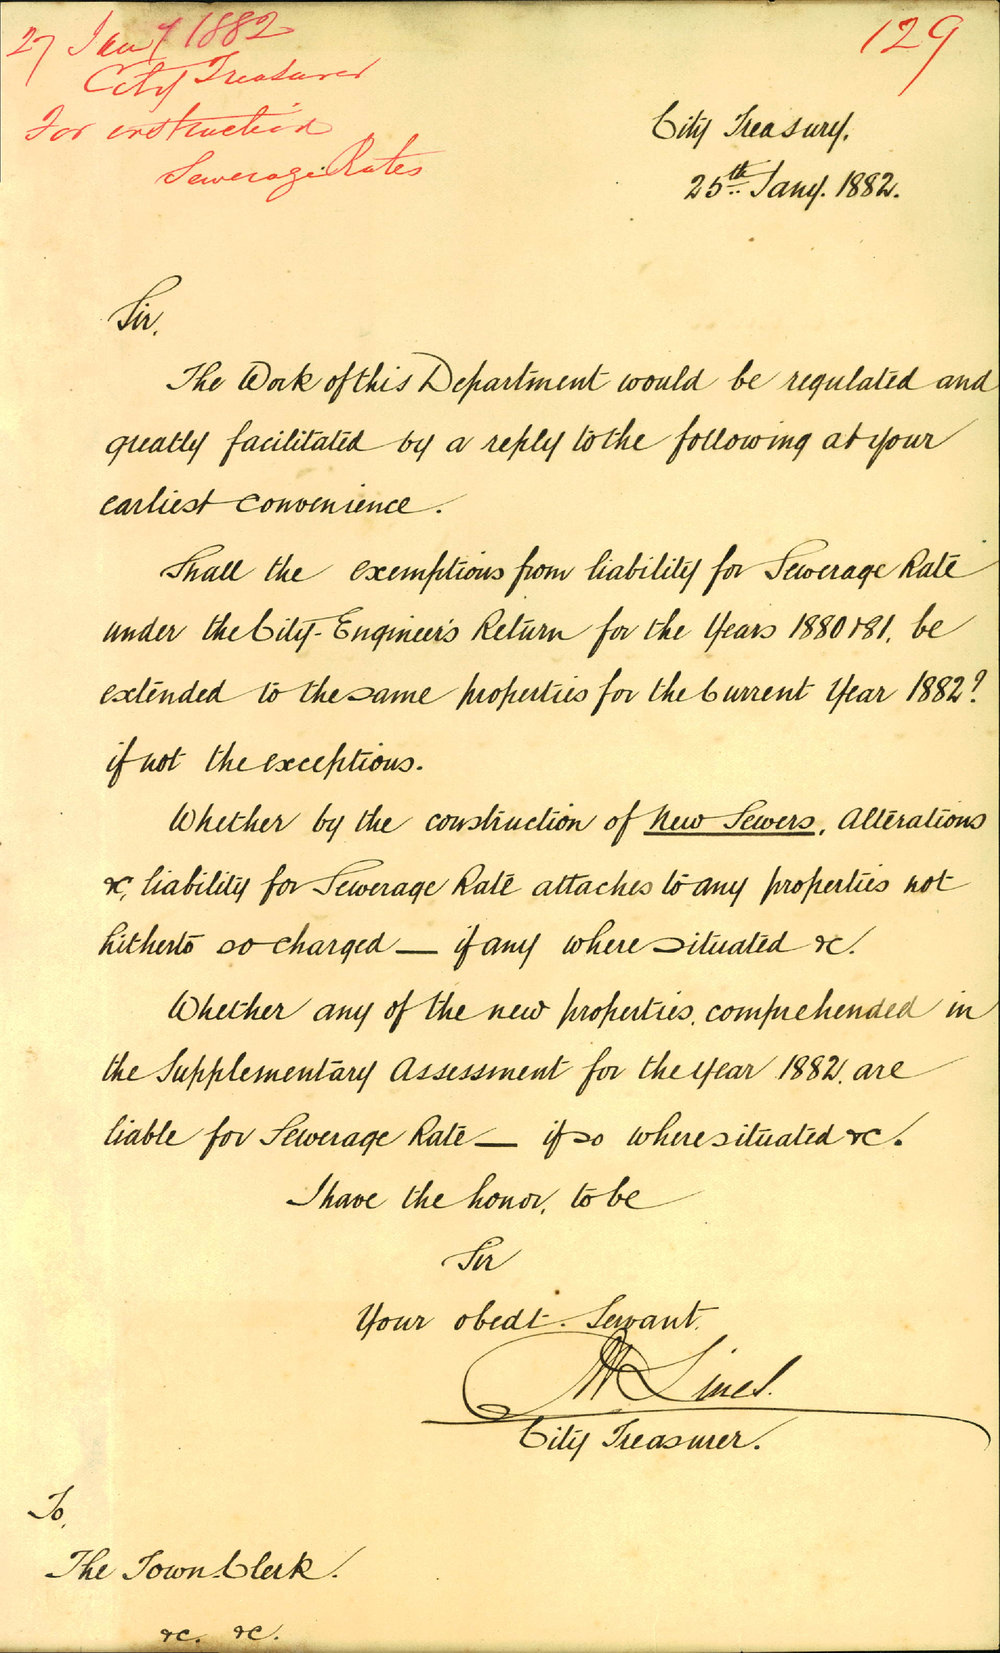 27 Jany 1882
City Treasurer
For instruction
Sewerage Rates
129
City Treasury.
25th Jany. 1882.
Sir,
The Work of this Department would be regulated and
greatly facilitated by a reply to the following at your
earliest convenience.
Shall the exemptions from liability for Sewerage Rate
under the City Engineer's Return for the Years 1880 & 81, be
extended to the same properties for the Current Year 1882?
if not the exceptions.
Whether by the construction of New Sewers, Alterations
&c, liability for Sewerage Rate attaches to any properties not
hitherto so charged — if any where situated &c.
Whether any of the new properties, comprehended in
the Supplementary Assessment for the year 1882, are
liable for Sewerage Rate — if so where situated &c.
I have the honor, to be
Sir
Your obedt. Servant.
Lines.
City Treasurer.
To,
The Town Clerk.
&c. &c.